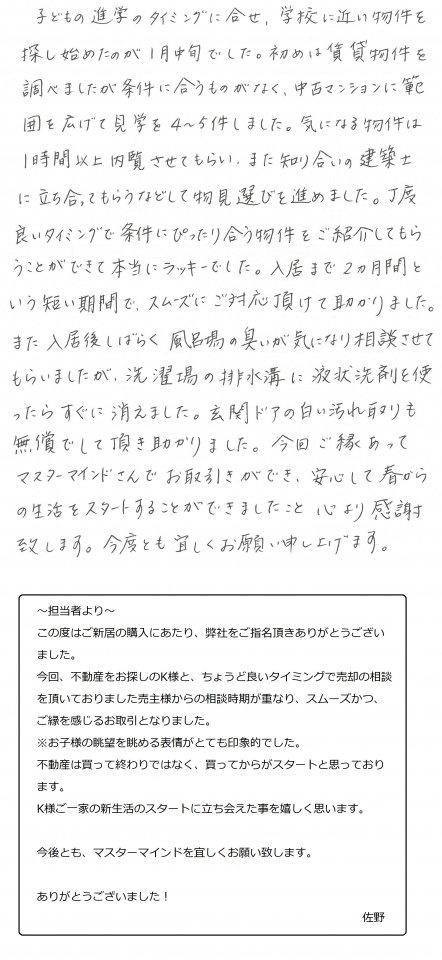 子どもの進学のタイミングに合せ、学校に近い物件を
探し始めたのが1月中旬でした。初めは賃貸物件を
調べましたが条件に合うものがなく、中古マンションに範
囲を広げて見学を4〜5件しました。気になる物件は
1時間以上内覧させてもらい、また知り合いの建築士
に立ち合ってもらうなどして物見選びを進めました。丁度
良いタイミングで条件にぴったり合う物件をご紹介してもら
うことができて本当にラッキーでした。入居まで2カ月間と
いう短い期間で、スムーズにご対応頂けて助かりました。
また入居後しばらく風呂場の臭いが気になり相談させて
もらいましたが、洗濯場の排水溝に液状洗剤を使
ったらすぐに消えました。玄関ドアの白い汚れ取りも
無償でして頂き助かりました。今回ご縁あって
マスターマインドさんでお取引きができ、安心して春から
の生活をスタートすることができましたこと心より感謝
致します。今度とも宜しくお願い申し上げます。
～担当者より～
この度はご新居の購入にあたり、弊社をご指名頂きありがとうござい
ました。
今回、不動産をお探しのK様と、ちょうど良いタイミングで売却の相談
を頂いておりました売主様からの相談時期が重なり、スムーズかつ、
ご縁を感じるお取引となりました。
※お子様の眺望を眺める表情がとても印象的でした。
不動産は買って終わりではなく、買ってからがスタートと思っており
ます。
K様ご一家の新生活のスタートに立ち会えた事を嬉しく思います。
今後とも、マスターマインドを宜しくお願い致します。
ありがとうございました！
佐野